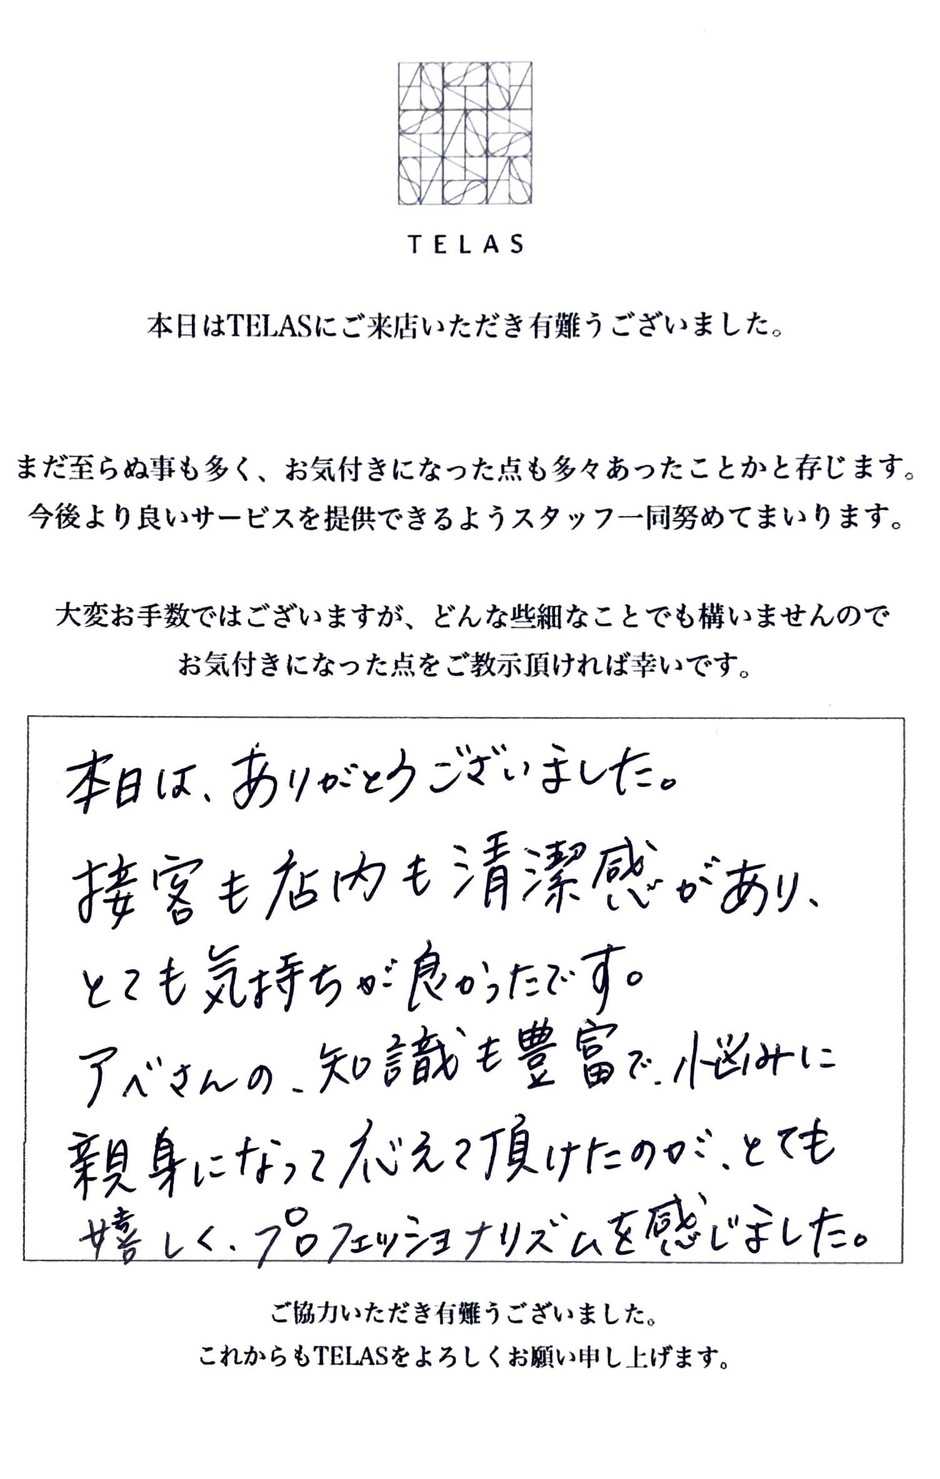 TELAS
本日はTELASにご来店いただき有難うございました。
まだ至らぬ事も多く、お気付きになった点も多々あったことかと存じます。
今後より良いサービスを提供できるようスタッフ一同努めてまいります。
大変お手数ではございますが、どんな些細なことでも構いませんので
お気付きになった点をご教示頂ければ幸いです。
本日は、ありがとうございました。
接客も店内も清潔感があり、
とても気持ちが良かったです。
アベさんの、知識も豊富で、悩みに
親身になって応えて頂けたのが、とても
嬉しく、プロフェッショナリズムを感じました。
ご協力いただき有難うございました。
これからもTELASをよろしくお願い申し上げます。